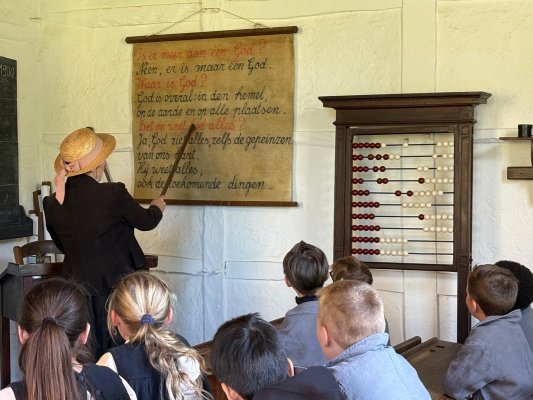 1900
Is er meer dan één God?
Neen, er is maar één God.
Waar is God?
God is overal: in den hemel,
op de aarde en op alle plaatsen.
Ziet en weet alles?
Ja, God ziet alles, zelfs de gepeinzen
van ons hart.
Hij weet alles,
ook de toekomende dingen.